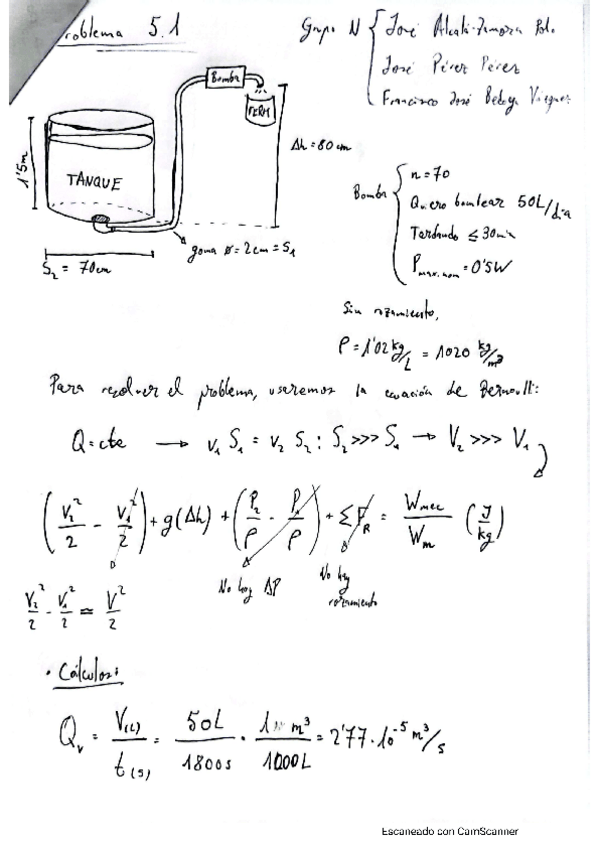 Problema 5.1
Grupo N { José Alcalá-Zamora Polo
José Pérez Pérez
Francisco José Bedoya Vázquez
Bomba
FERM
Δh = 80 cm
1'5m
TANQUE
goma ø = 2cm = S₁
S₂ = 70cm
Bomba { η = 70
Quiero bombear 50L/día
Tardando ≤ 30min
P max. nom = 0'5W
Sin rozamiento,
ρ = 1'02 kg/L = 1020 kg/m³
Para resolver el problema, usaremos la ecuación de Bernoulli:
Q = cte → v₁ S₁ = v₂ S₂ : S₂ >>> S₁ → V₂ >>> V₁
(V₂²/2 - V₁²/2) + g(Δh) + (P₂/ρ - P₁/ρ) + ΣF_R = W_mec/W_m (J/kg)
No hay ΔP
No hay rozamiento
V₂²/2 - V₁²/2 ≃ V²/2
· Cálculos:
Q_v = V(L)/t(s) = 50L/1800s · 1 m³/1000L = 2'77·10⁻⁵ m³/s
Escaneado con CamScanner